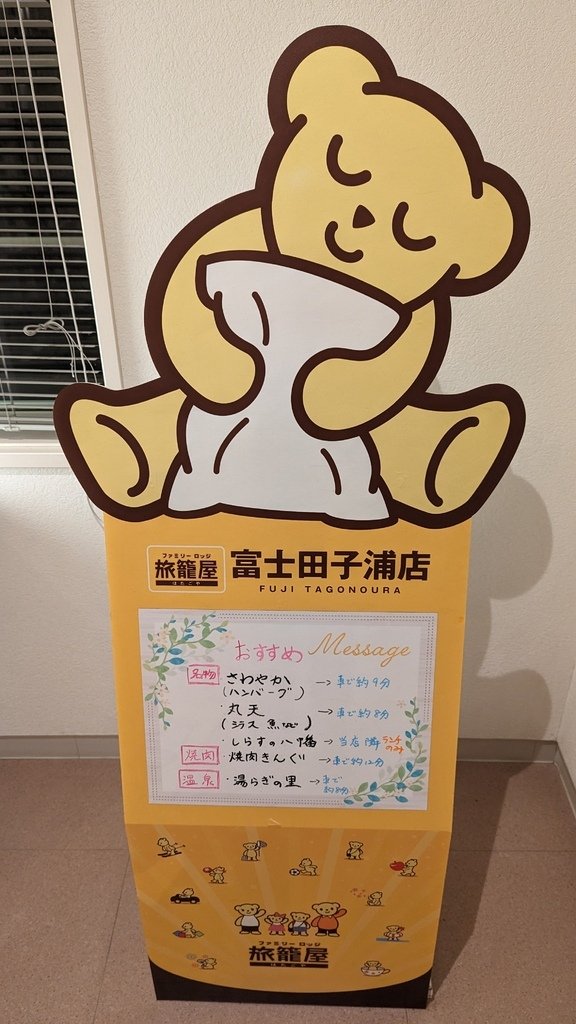 ファミリー ロッジ
旅籠屋
はたごや
富士田子浦店
FUJI TAGONOURA
おすすめ Message
名物 さわやか → 車で約9分
(ハンバーグ)
・丸天 → 車で約8分
(シラス 魚など)
・しらすの八幡 → 当店隣 ランチのみ
焼肉 ・焼肉きんぐ → 車で約12分
温泉 ・湯らぎの里 → 車で
約8分
ファミリー ロッジ
旅籠屋
はたごや